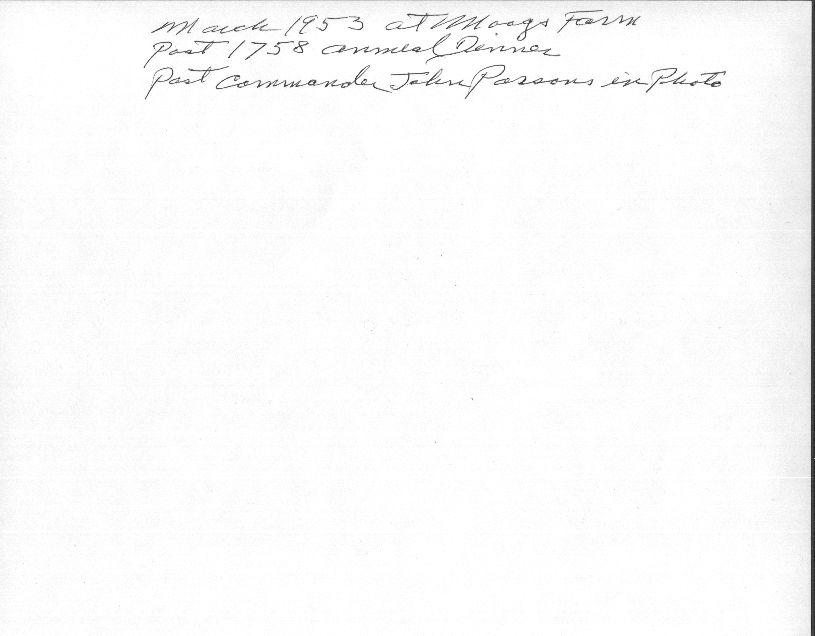 March 1953 at Moogs Farm
Post 1758 annual Dinner
Post Commander John Parsons in Photo